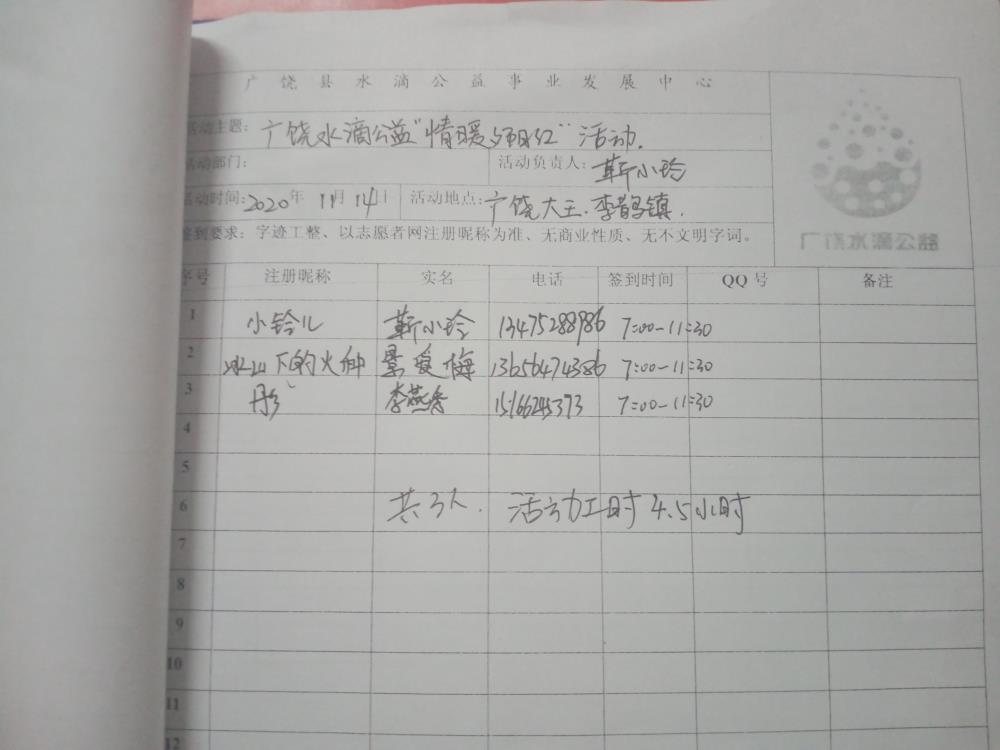 广饶县水滴公益事业发展中心
活动主题：广饶水滴公益"情暖夕阳红"活动.
活动部门： 活动负责人：靳小玲
活动时间：2020年 11月 14日 活动地点：广饶大王.李鹊镇.
签到要求：字迹工整、以志愿者网注册昵称为准、无商业性质、无不文明字词。
广饶水滴公益
序号 注册昵称 实名 电话 签到时间 QQ号 备注
1 小铃儿 靳小玲 13475288986 7:00-11:30
2 冰山下的火种 景爱梅 13656474386 7:00-11:30
3 彤 李燕 15166245373 7:00-11:30
4
5
6 共3人. 活动工时4.5小时
7
8
9
10
11
12